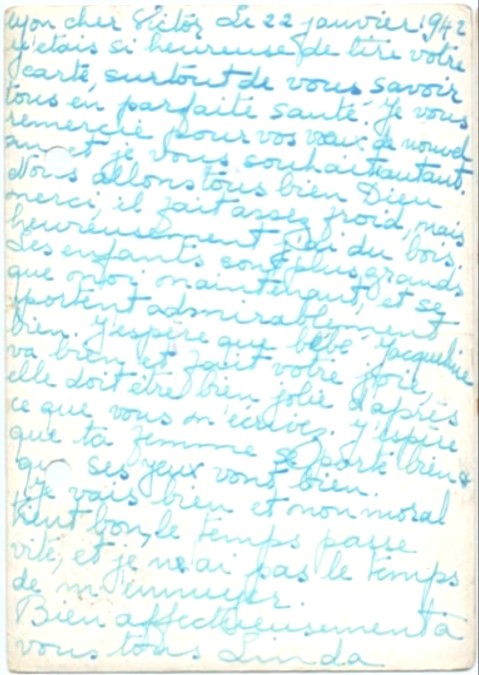 Mon cher Victor Le 22 janvier 1942
j'étais si heureuse de lire votre
carte, surtout de vous savoir
tous en parfaite santé. Je vous
remercie pour vos vœux de nouvel
an et je vous souhaite autant.
Nous allons tous bien Dieu
merci, il fait assez froid, mais
heureusement j'ai du bois,
Les enfants sont plus grands
que moi maintenant, et se
portent admirablement
bien. J'espère que bébé Jacqueline
va bien et fait votre joie,
elle doit être bien jolie d'après
ce que vous m'écrivez. J'espère
que ta femme se porte bien &
que ses yeux vont bien.
Je vais bien et mon moral
tient bon, le temps passe
vite, et je n'ai pas le temps
de m'ennuyer.
Bien affectueusement à
vous tous Linda